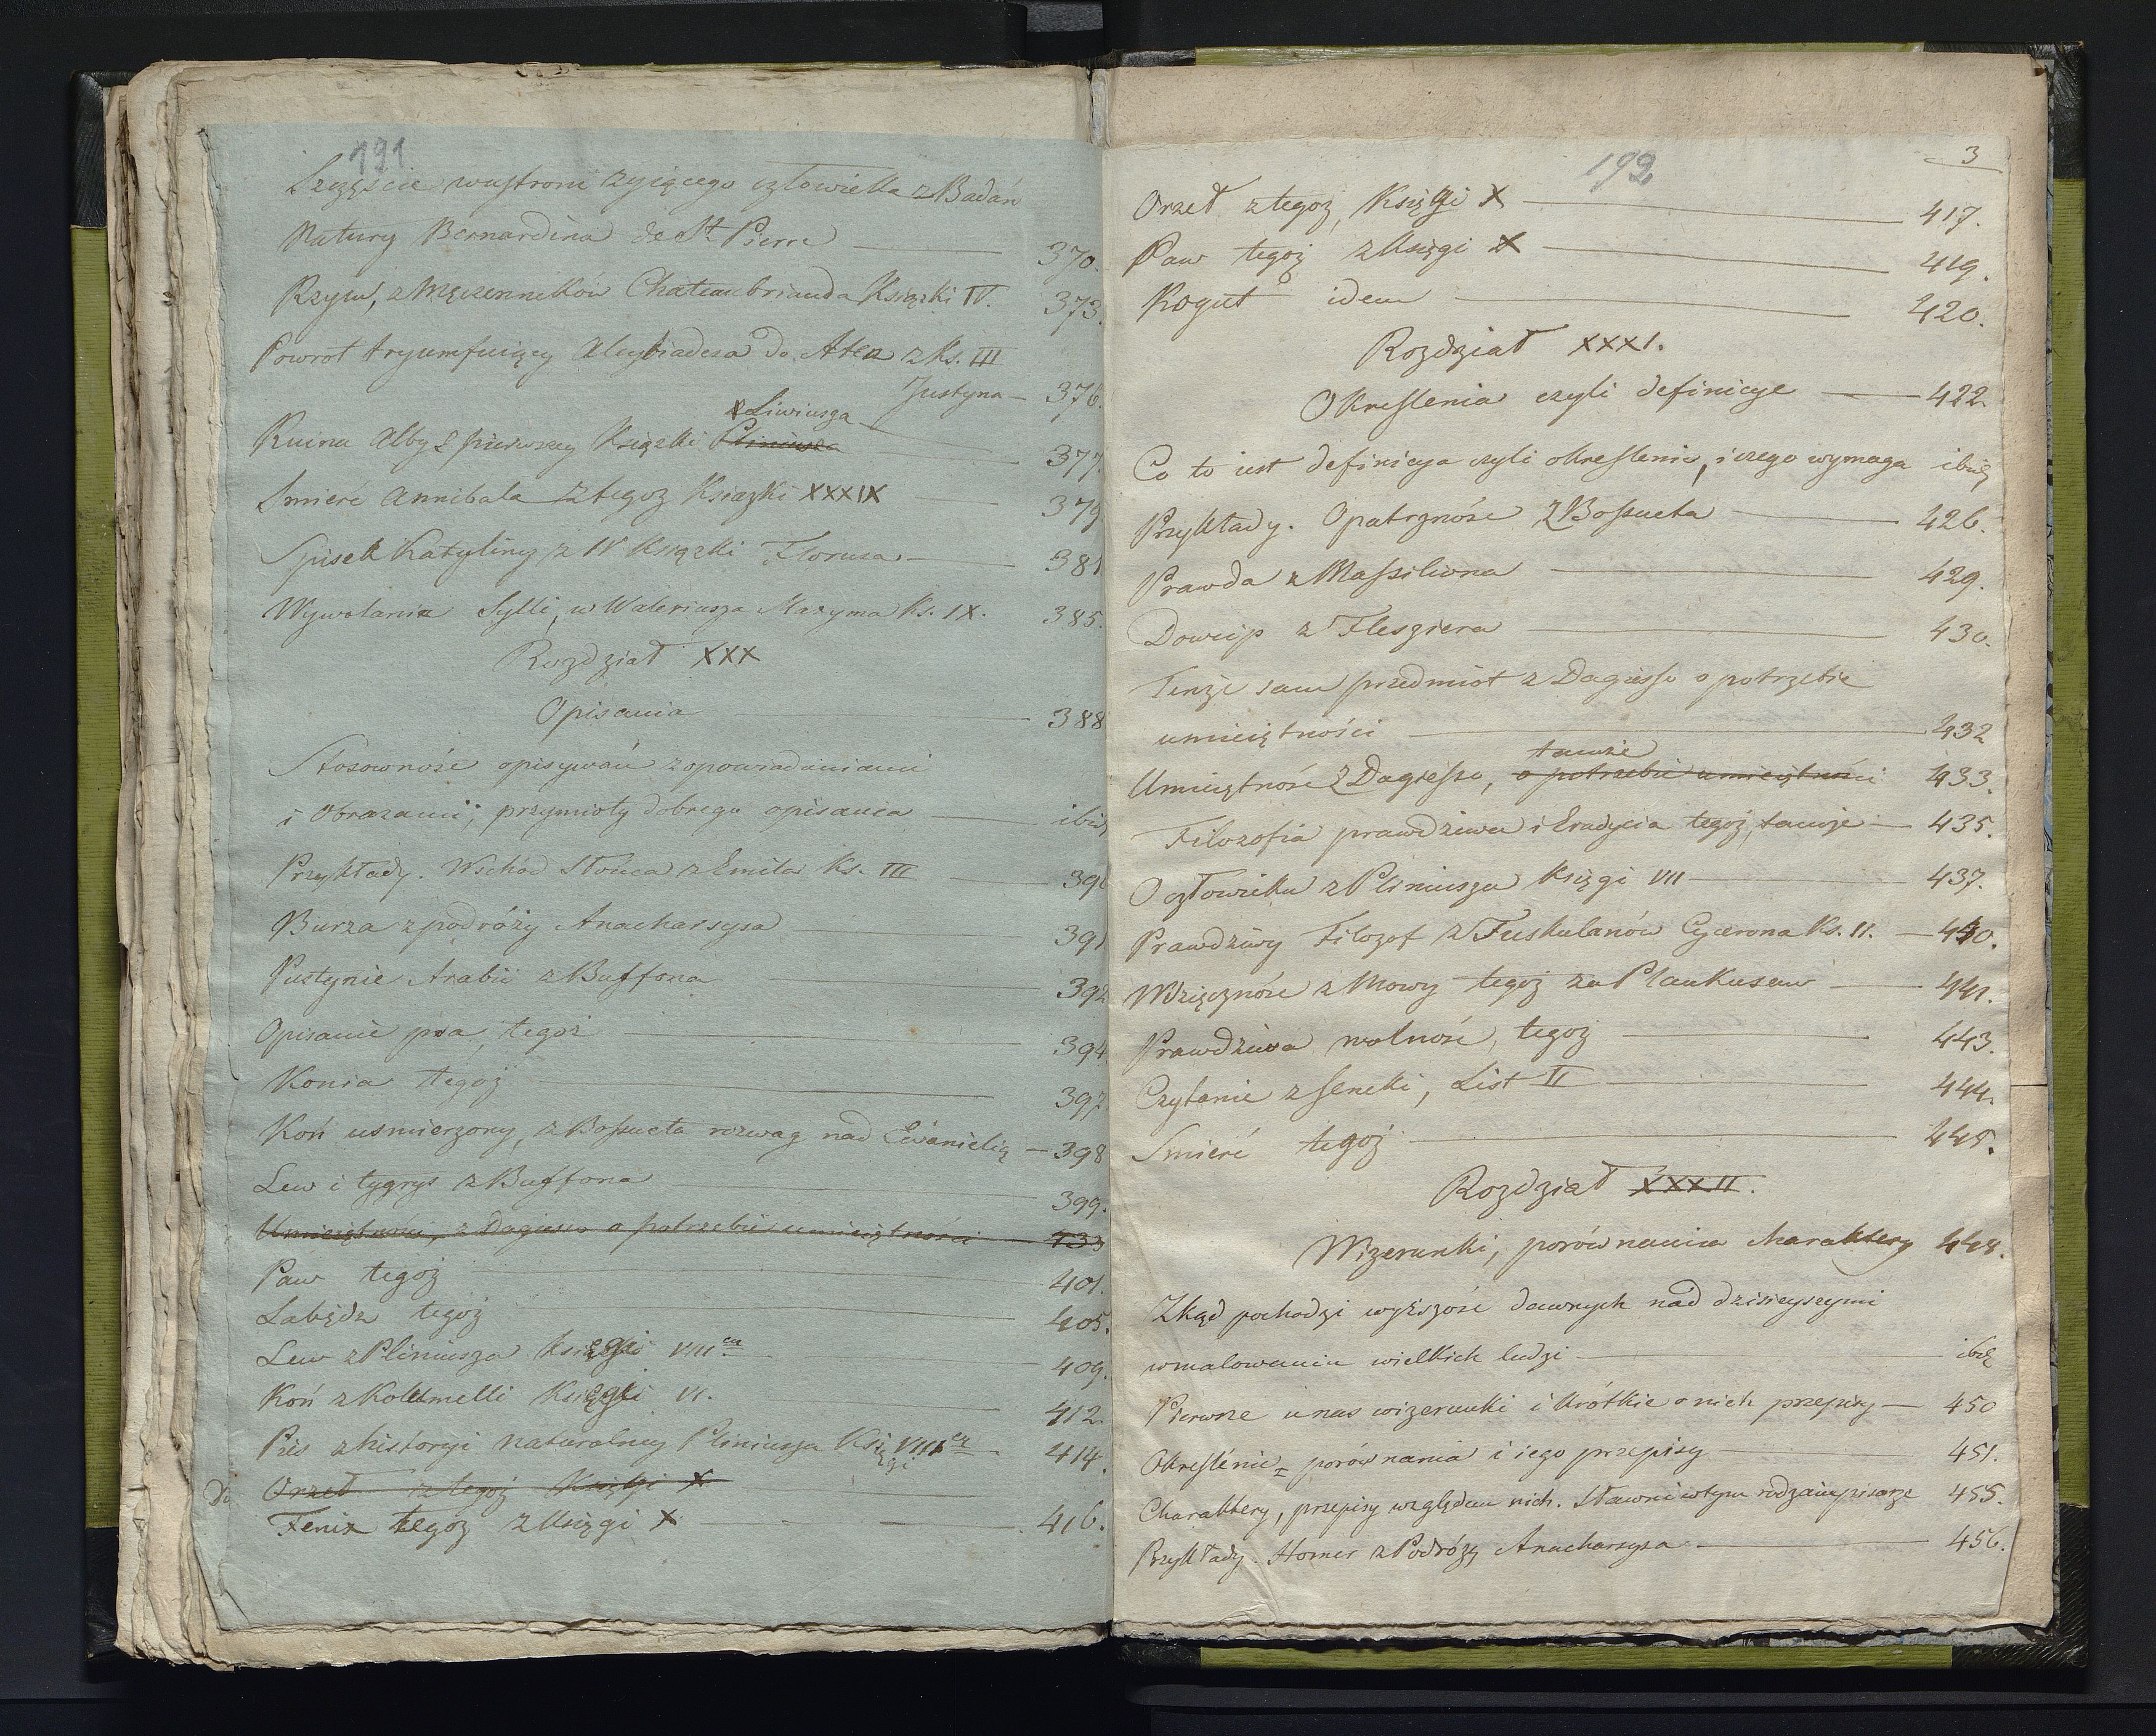 191
Szczęście wustroni zyiącego człowieka z Badań
Natury Bernardina de St. Pierre — 370.
Rzym, z Męczenników Chateaubrianda Książki IV. 373.
Powrot tryumfuiący Alcybiadesa do Aten z Ks. III
Justyna — 376.
z Liwiusza
Ruina Alby z pierwszey Książki Pliniusza — 377.
Smierć Annibala z tegoż Książki XXXIX — 379
Spisek Katyliny z IV Książki Florusa — 381
Wywołania Sylli, w Waleriusza Maxyma Ks. IX. 385.
Rozdział XXX
Opisania — 388
Stosowność opisywań z opowiadaniami
i Obrazami; przymioty dobrego opisania — ibid,
Przykłady. Wschód Słońca z Emila Ks. III — 390
Burza z podróży Anacharsysa — 391
Pustynie Arabii z Buffona — 392
Opisanie psa tegoż — 394
Konia tegoż — 397
Koń usmierzony, z Bossueta rozwag nad Ewanielią — 398
Lew i tygrys z Buffona — 399.
Umieiętności, z Dagiesso o potrzebie umieiętności — 433
Paw tegoż — 401.
Labędz tegoż — 405.
Lew z Pliniusza Księgi VIII ey — 409.
Koń z Kolumelli Księgi VI. — 412.
Pies z historyi naturalney Pliniusza Księgi VIII ey — 414.
Orzeł z tegoż Księgi X —
Fenix tegoż z Księgi X — 416.
192
3
Orzeł z tegoż, Księgi X — 417.
Paw tegoż z Księgi X — 419.
Kogut idem — 420.
Rozdział XXXI.
Okreslenia czyli definicye — 422.
Co to iest definicya czyli okreslenie, i czego wymaga ibid
Przykłady. Opatrzność z Bossueta — 426.
Prawda z Massiliona — 429.
Dowcip z Flesziera — 430.
Tenże sam przedmiot z Dagiesso o potrzebie
umieiętności — 432
tamże
Umieiętność z Dagiesso, o potrzebie umieiętności 433.
Filozofia prawdziwa i Erudycia tegoż, tamże — 435.
O człowieku z Pliniusza Księgi VII — 437.
Prawdziwy Filozof z Tuskulanów Cycerona Ks. II. — 440.
Wdzięczność z Mowy tegoż za Plankusem — 441.
Prawdziwa wolność, tegoż — 443.
Czytanie z Seneki, List II — 444.
Smierć tegoż — 445.
Rozdział XXXII.
Wizerunki, porównania charaktery 448.
Zkąd pochodzi wyższość dawnych nad dzisieyszymi
w malowaniu wielkich ludzi — ibid
Pierwsze u nas wizerunki i krótkie o nich przepisy — 450
Okreslenie porównania i iego przepisy — 451.
Charaktery, przepisy względem nich. Sławni w tym rodzaiu pisarze 455.
Przykłady. Homer z Podróży Anacharsysa — 456.